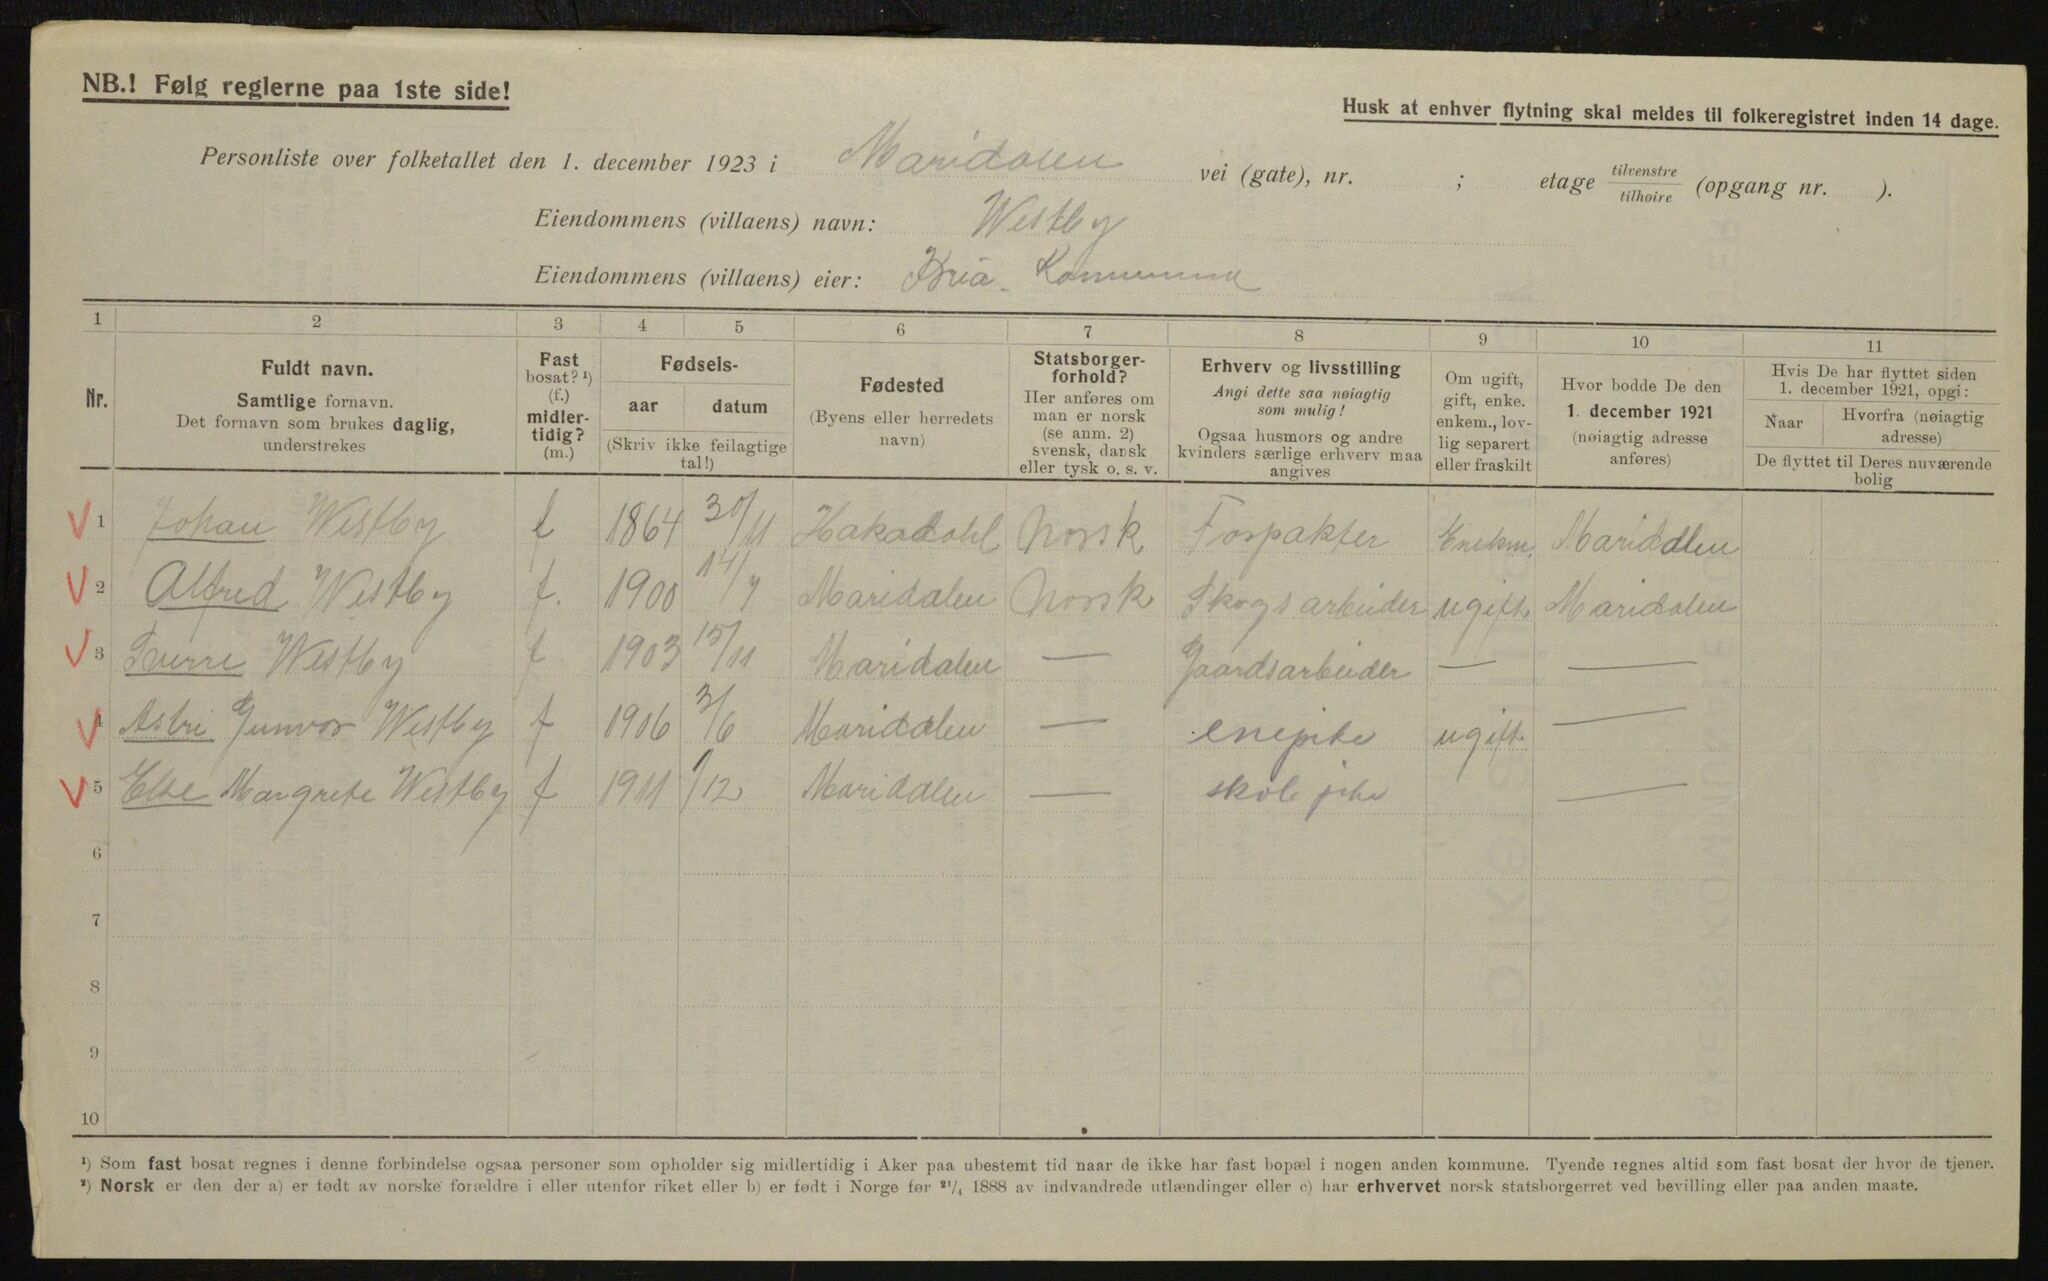 NB.! Følg reglerne paa 1ste side!
Husk at enhver flytning skal meldes til folkeregistret inden 14 dage.
Personliste over folketallet den 1. december 1923 i Maridalen vei (gate), nr. ; etage tilvenstre/tilhøire (opgang nr. ).
Eiendommens (villaens) navn: Westby
Eiendommens (villaens) eier: Kria. Kommune
1 2 3 4 5 6 7 8 9 10 11
Nr.
Fuldt navn.
Samtlige fornavn.
Det fornavn som brukes daglig,
understrekes
Fast
bosat? ¹)
(f.)
midler-
tidig?
(m.)
Fødsels-
aar datum
(Skriv ikke feilagtige
tal!)
Fødested
(Byens eller herredets
navn)
Statsborger-
forhold?
Her anføres om
man er norsk
(se anm. 2)
svensk, dansk
eller tysk o. s. v.
Erhverv og livsstilling
Angi dette saa nøiagtig
som mulig!
Ogsaa husmors og andre
kvinders særlige erhverv maa
angives
Om ugift,
gift, enke.
enkem., lov-
lig separert
eller fraskilt
Hvor bodde De den
1. december 1921
(nøiagtig adresse
anføres)
Hvis De har flyttet siden
1. december 1921, opgi:
Naar Hvorfra (nøiagtig
adresse)
De flyttet til Deres nuværende
bolig
1 Johan Westby f 1864 30/11 Hakadahl Norsk Forpakter Enkm. Maridalen
2 Alfred Westby f. 1900 14/7 Maridalen Norsk Skogsarbeider ugift Maridalen
3 Sverre Westby f 1903 15/11 Maridalen — Gaardsarbeider — —
4 Astri Gunvor Westby f 1906 3/6 Maridalen — ugift —
5 Else Margrete Westby f 1911 /12 Maridalen — —
6
7
8
9
10
¹) Som fast bosat regnes i denne forbindelse ogsaa personer som opholder sig midlertidig i Aker paa ubestemt tid naar de ikke har fast bopæl i nogen anden kommune. Tyende regnes altid som fast bosat der hvor de tjener.
²) Norsk er den der a) er født av norske forældre i eller utenfor riket eller b) er født i Norge før ²¹/₄ 1888 av indvandrede utlændinger eller c) har erhvervet norsk statsborgerret ved bevilling eller paa anden maate.